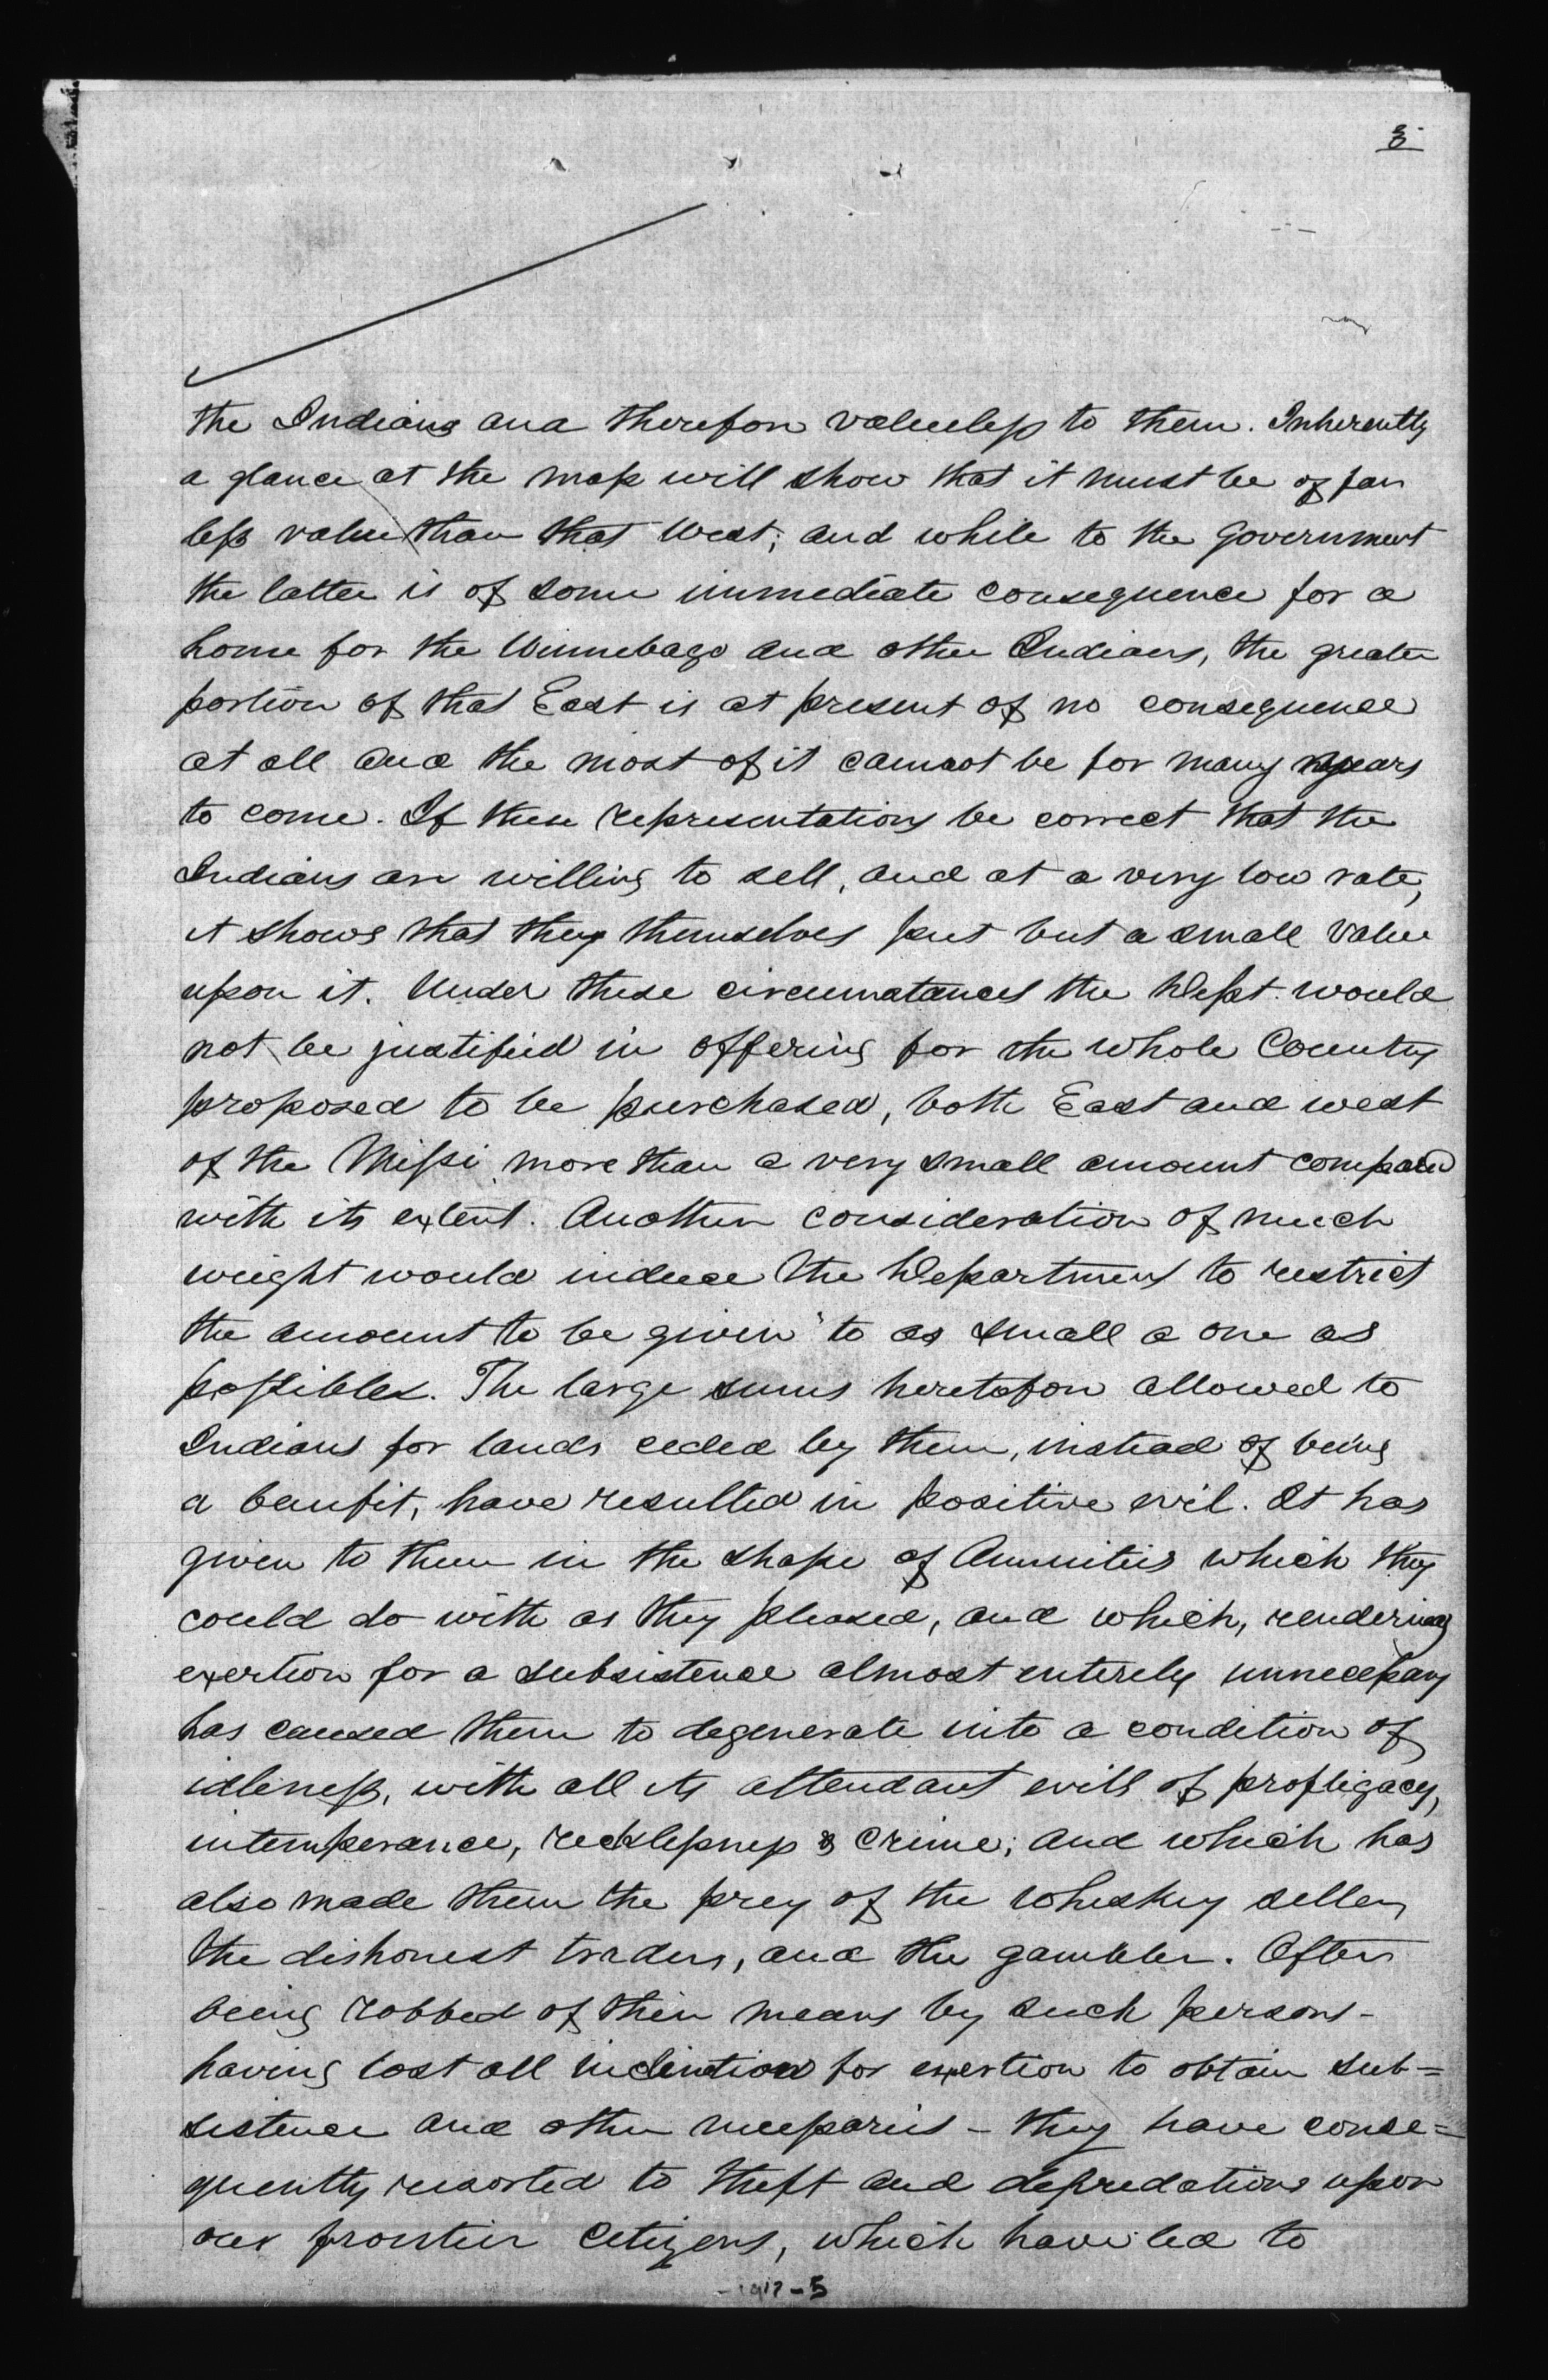 3
the Indians and therefore valueless to them. Inherently
a glance at the map will show that it must be of far
less value than that West; and while to the Government
the latter is of some immediate consequence for a
home for the Winnebago and other Indians, the greater
portion of that East is at present of no consequence
at all and the most of it cannot be for many years
to come. If these representations be correct that the
Indians are willing to sell, and at a very low rate,
it shows that they themselves put but a small value
upon it. Under these circumstances the Dept. would
not be justified in offering for the whole Country
proposed to be purchased, both East and west
of the Missi more than a very small amount compared
with its extent. Another consideration of much
weight would induce the Department to restrict
the amount to be given to as small a one as
possible. The large sums heretofore allowed to
Indians for lands ceded by them, instead of being
a benefit, have resulted in positive evil. It has
given to them in the shape of Annuities which they
could do with as they pleased, and which, rendering
exertion for a subsistence almost entirely unnecessary
has caused them to degenerate into a condition of
idleness, with all its attendant evils of profligacy,
intemperance, recklessness & crime; and which has
also made them the prey of the whiskey seller,
the dishonest traders, and the gambler. After
being robbed of their means by such persons -
having lost all inclination for exertion to obtain sub=
sistence and other necessaries - they have conse=
quently resorted to theft and depredations upon
our frontier citizens, which have led to
-1912-5